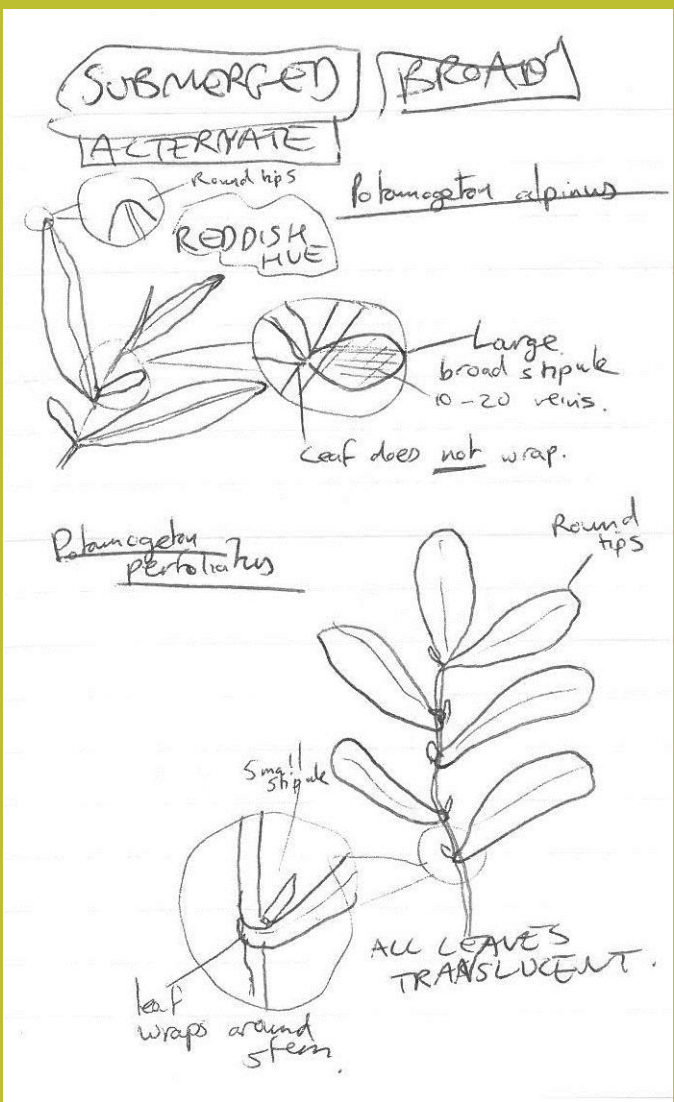 SUBMERGED BROAD
ALTERNATE
Round tips
Potamogeton alpinus
REDDISH
HUE
Large
broad stipule
10-20 veins.
Leaf does not wrap.
Potamogeton
perfoliatus
Round
tips
Small
stipule
ALL LEAVES
TRANSLUCENT.
leaf
wraps around
stem.